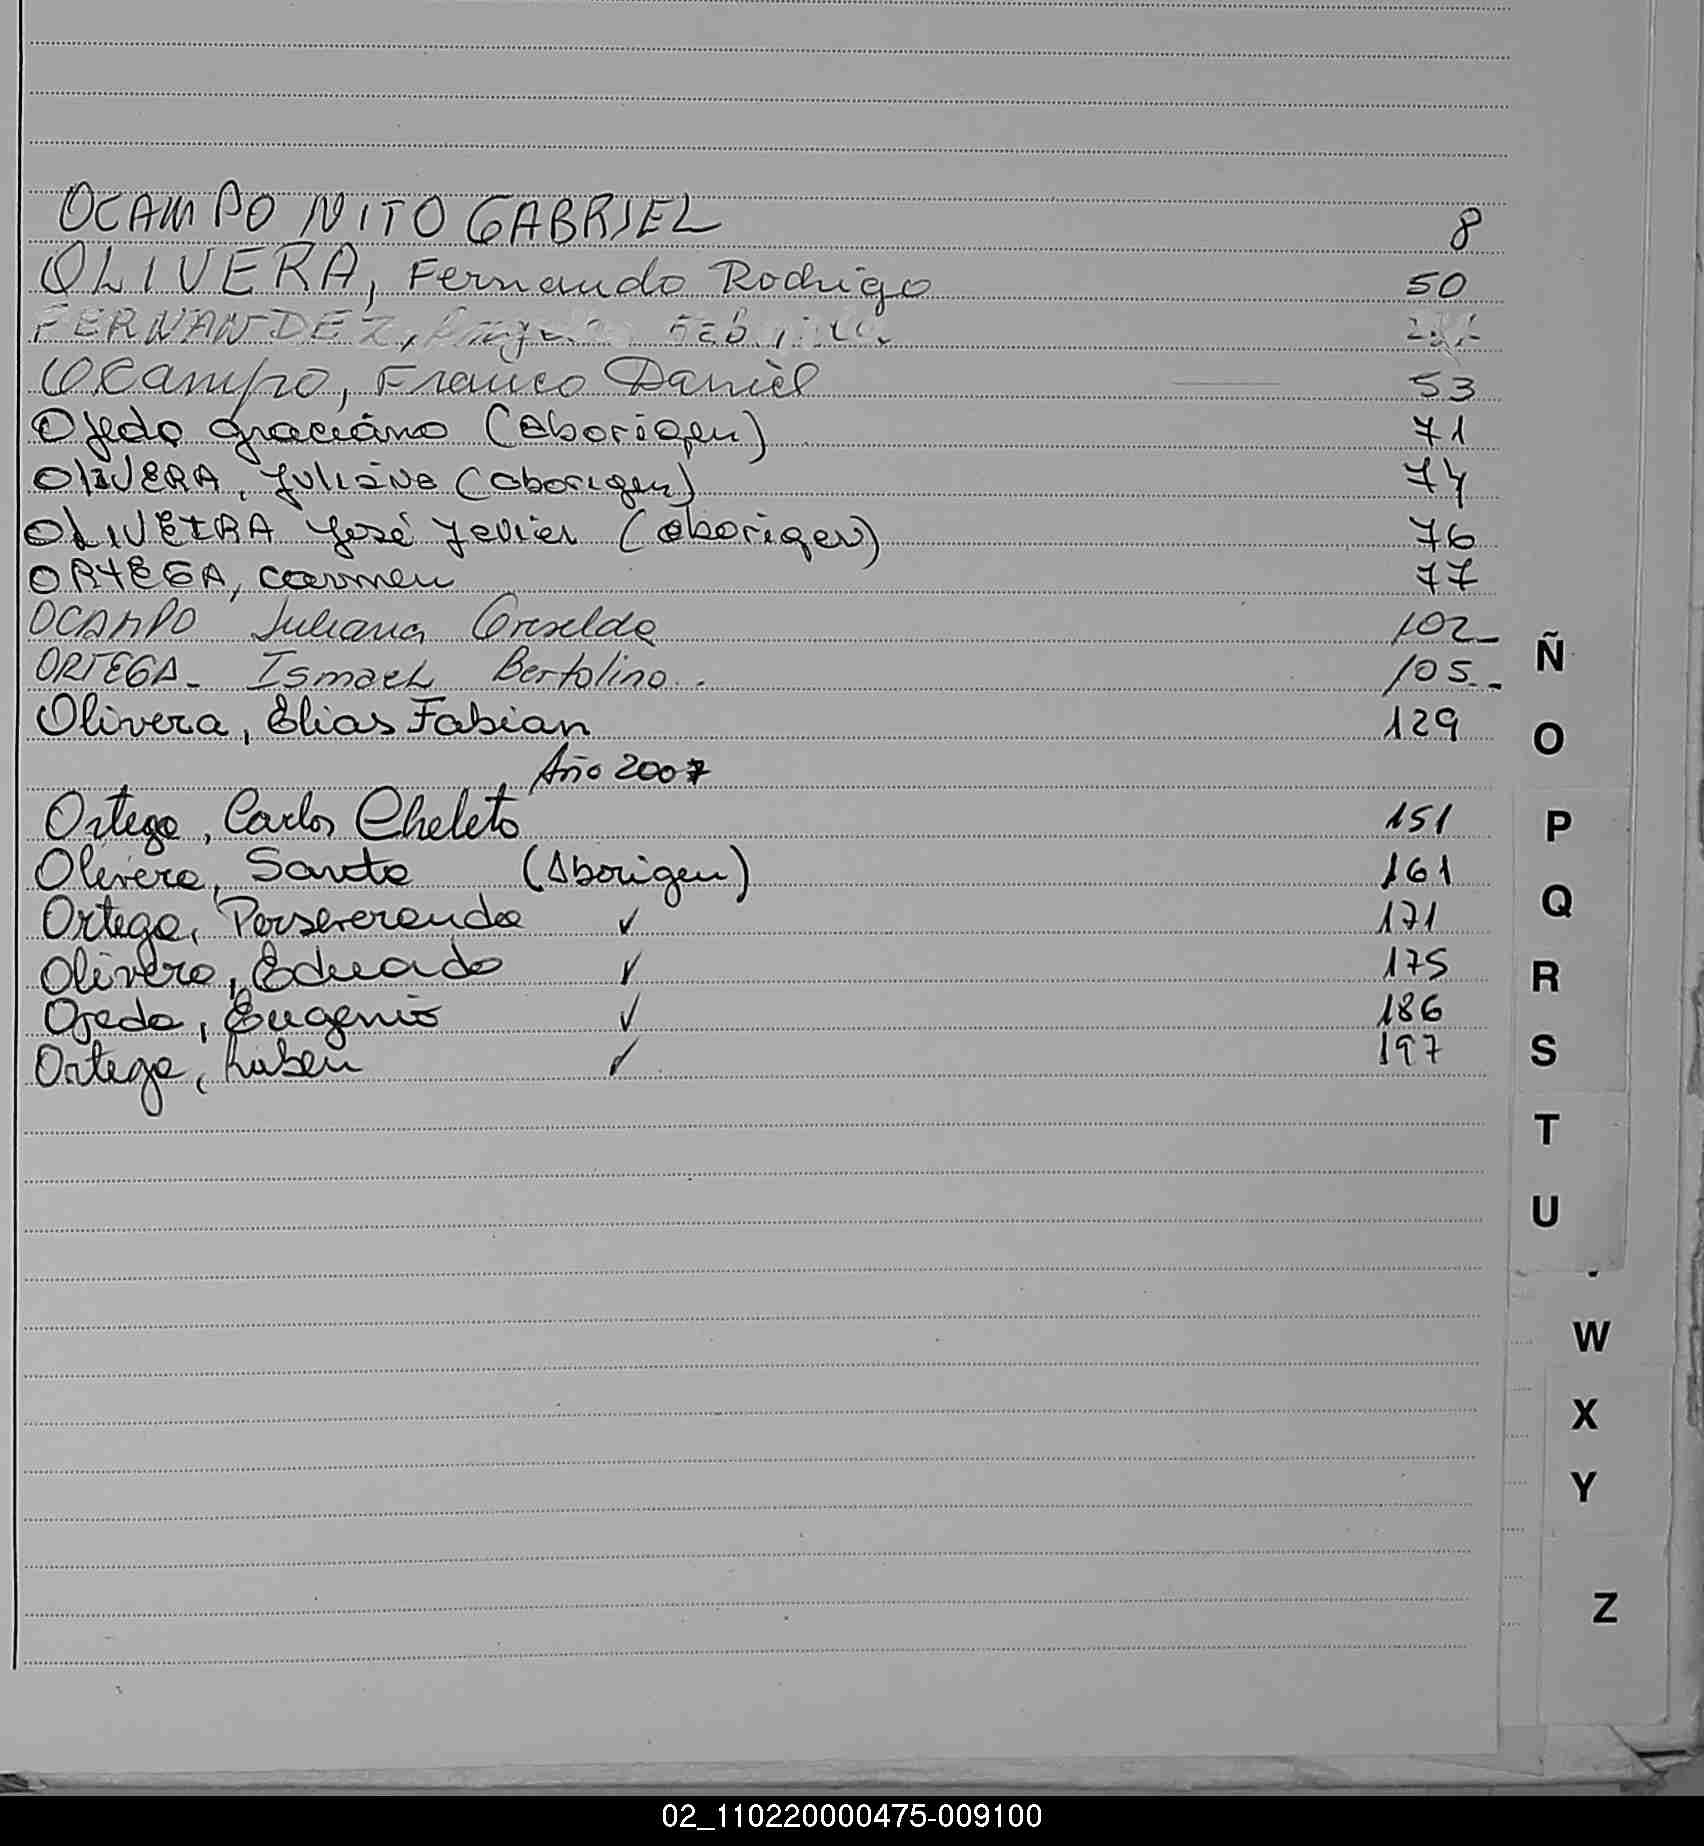 OCAMPO NITO GABRIEL 8
OLIVERA, Fernando Rodrigo 50
FERNANDEZ,
Ocampo, Franco Daniel 53
Ojeda Graciano (Aborigen) 71
OLIVERA, Juliana (aborigen) 74
OLIVEIRA José Javier (aborigen) 76
ORTEGA, Carmen 77
OCAMPO Juliana Griselda 102
ORTEGA - Ismael Bertolino.. 105
Olivera, Elias Fabian 129
Año 2007
Ortega, Carlos Cheleto 151
Olivera, Santo (Aborigen) 161
Ortega, Perseveranda ✓ 171
Olivera, Eduardo ✓ 175
Ojeda, Eugenio ✓ 186
Ortega, Ruben ✓ 197
Ñ
O
P
Q
R
S
T
U
W
X
Y
Z
02_110220000475-009100